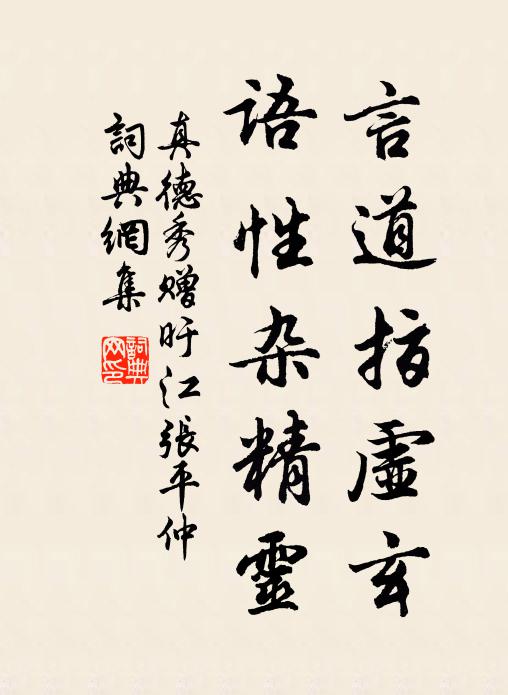 言道指虚玄
语性杂精靈
真德秀赠旴江張平仲
詞典網集
詞典網印